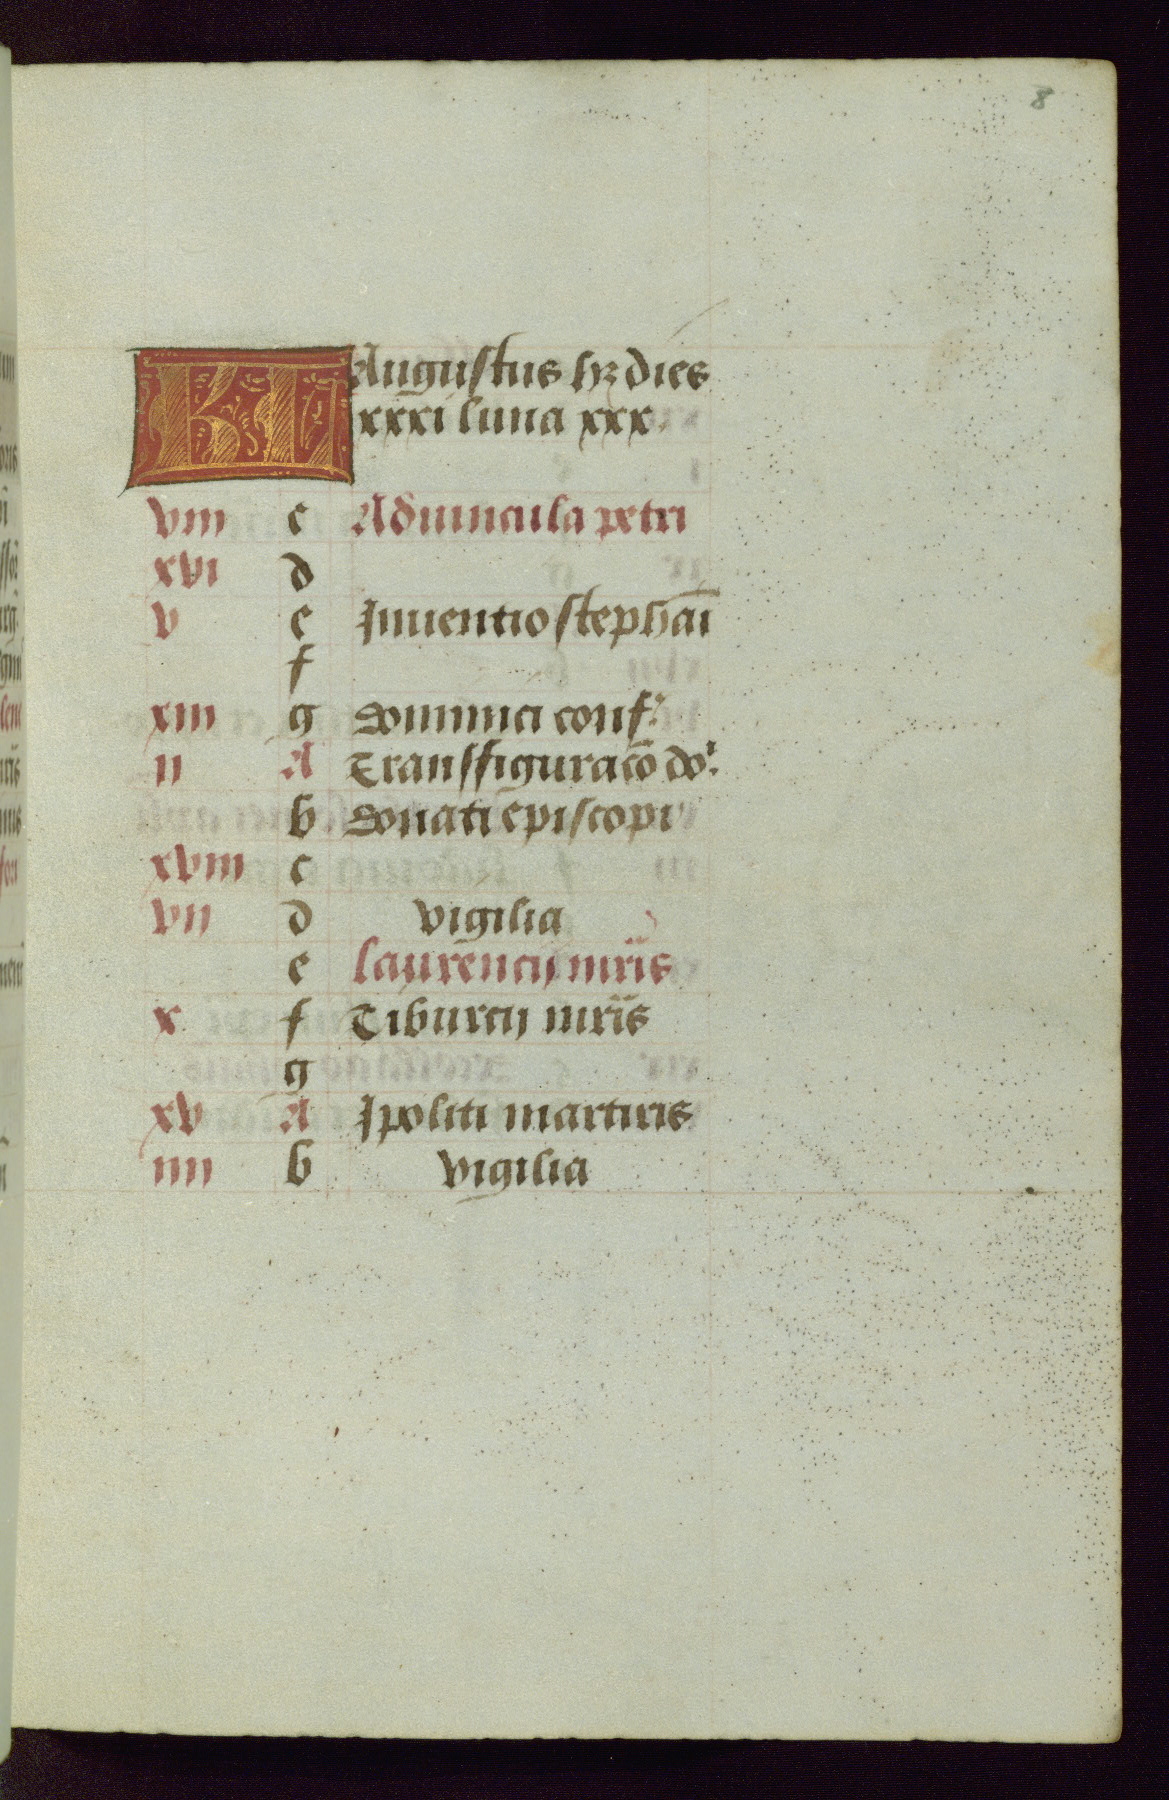 8
KL Augustus hꝫ dies
xxxi luna xxx.
viii c Aduincula petri
xvi d
v e Inuentio stephāi
f
xiii g Dominici conf.
ii A Transfiguracō do.
b Donati episcopi
xviii c
vii d vigilia
e laurencij mr̄is
x f Tiburcij mr̄is
g
xv A Ipoliti martiris
iiii b vigilia